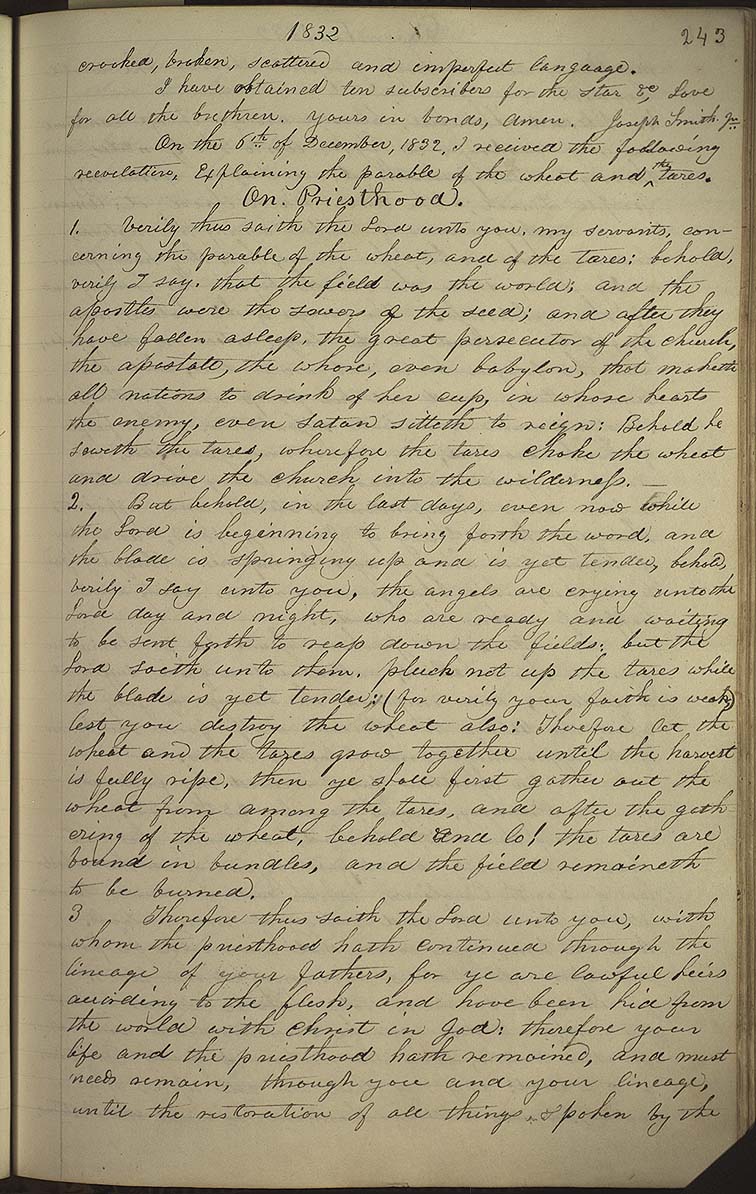 1832 243
crooked, broken, scattered and imperfect language.
I have obtained ten subscribers for the Star &c, Love
for all the brethren. yours in bonds, Amen. Joseph Smith. Jr.
On the 6th of December, 1832, I received the following
reevelation, Explaining the parable of the wheat and ^the tares.
On. Priesthood.
1. Verily thus saith the Lord unto you, my servants, con-
cerning the parable of the wheat, and of the tares: behold,
verily I say, that the field was the world; and the
apostles were the sowers of the seed; and after they
have fallen asleep, the great persecutor of the church,
the apostate, the whore, even babylon, that maketh
all nations to drink of her cup, in whose hearts
the enemy, even Satan sitteth to reign: Behold he
soweth the tares, wherefore the tares choke the wheat
and drive the church into the wilderness. —
2. But behold, in the last days, even now while
the Lord is beginning to bring forth the word, and
the blade is springing up and is yet tender, behold,
verily I say unto you, the angels are crying unto the
Lord day and night, who are ready and waiting
to be sent forth to reap down the fields: but the
Lord saith unto them. pluck not up the tares while
the blade is yet tender; (for verily your faith is weak)
lest you destroy the wheat also: Therefore let the
wheat and the tares grow together until the harvest
is fully ripe, then ye shall first gather out the
wheat from among the tares, and after the gath
ering of the wheat, behold and lo! the tares are
bound in bundles, and the field remaineth
to be burned.
3 Therefore thus saith the Lord unto you, with
whom the priesthood hath continued through the
lineage of your fathers, for ye are lawful heirs
according to the flesh, and have been hid from
the world with Christ in God: therefore your
life and the priesthood hath remained, and must
needs remain, through you and your lineage,
until the restoration of all things spoken by the